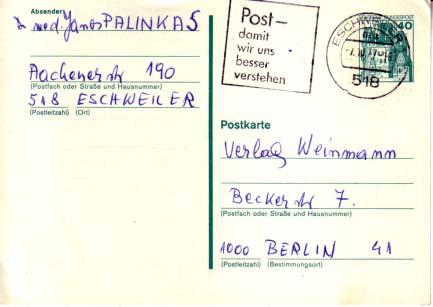 Absender
Dr med. Janos PALINKAS
Aachener str 190
(Postfach oder Straße und Hausnummer)
518 ESCHWEILER
(Postleitzahl) (Ort)
Post-
damit
wir uns
besser
verstehen
ESCHWEILER
518
DEUTSCHE BUNDESPOST
40
Postkarte
Verlag Weinmann
Becker str 7.
(Postfach oder Straße und Hausnummer)
1000 BERLIN 41
(Postleitzahl) (Bestimmungsort)